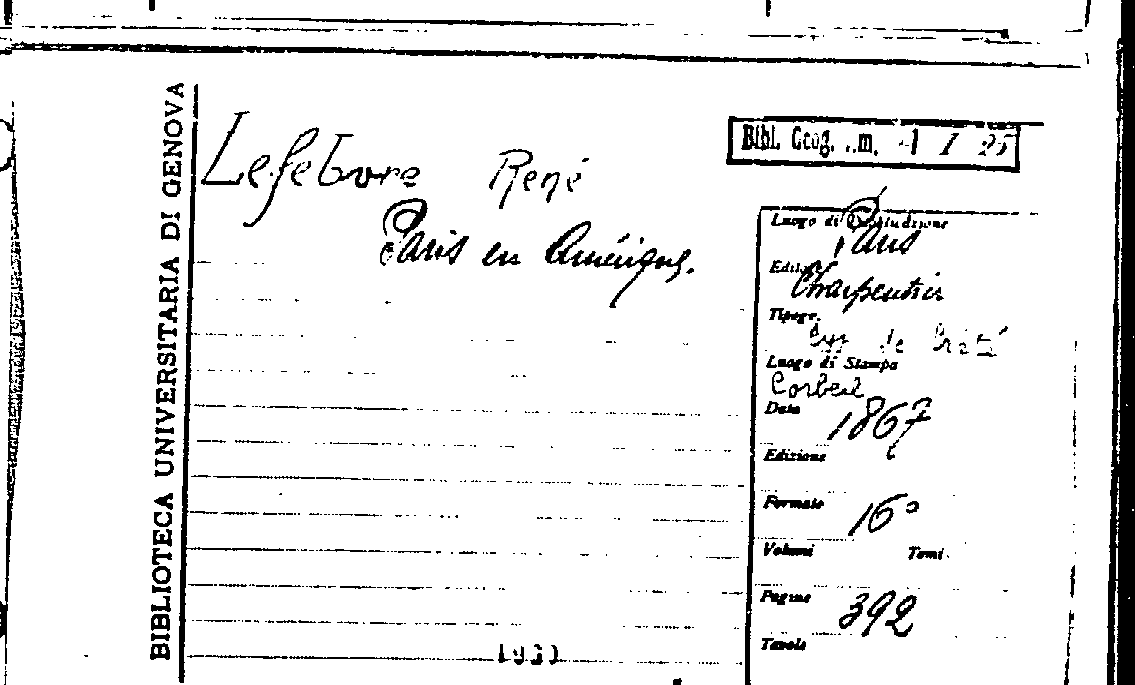 BIBLIOTECA UNIVERSITARIA DI GENOVA
Bibl. Geog. 1 25
Lefebvre René
Paris en Amérique.
Luogo di
Paris
Editore
Charpentier
Tipogr.
Typ de Crété
Luogo di Stampa
Corbeil
Data 1867
Edizione
Formato 16°
Volumi Tomi
Pagine 392
Tavole